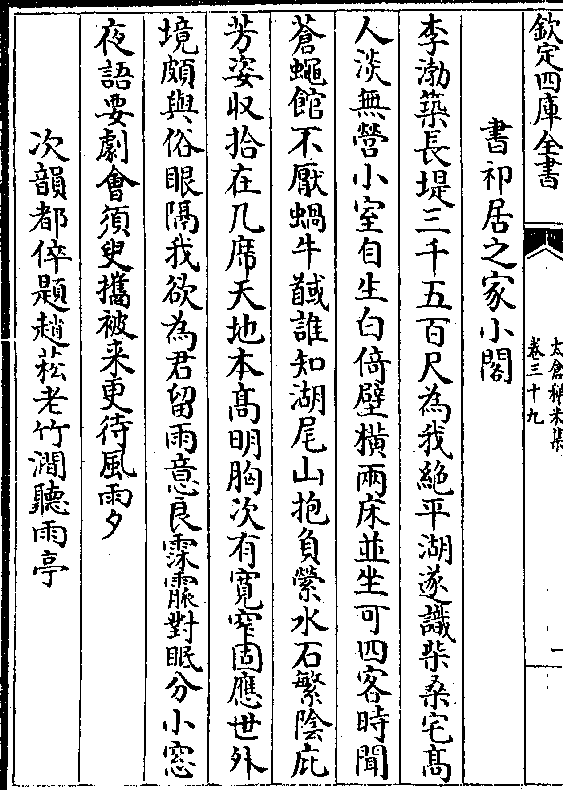 欽定四庫全書
太倉稊米集
卷三十九
一
書祁居之家小閣
李渤築長堤三千五百尺為我絶平湖遂識柴桑宅髙
人淡無營小室自生白倚壁橫兩床並坐可四客時聞
蒼蠅館不厭蝸牛馘誰知湖尾山抱負縈水石繁陰庇
芳姿収拾在几席天地本髙明胸次有寛窄固應世外
境頗與俗眼隔我欲為君留雨意良霂霡對眠分小窓
夜語要劇會須臾攜被来更待風雨夕
次韻都倅題趙菘老竹澗聽雨亭